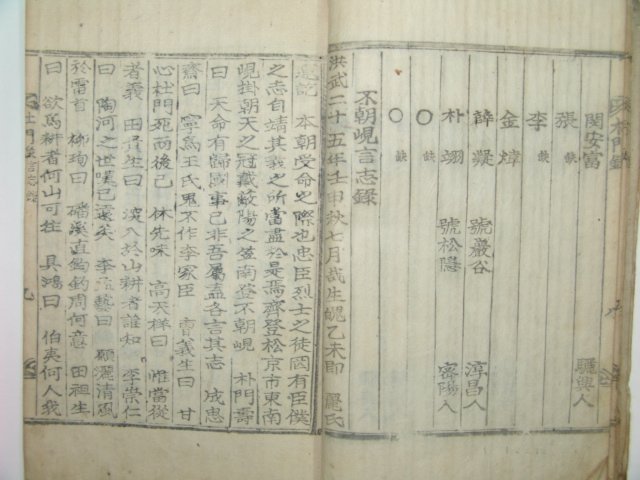 閔安富 驪興人
張 缺
李 缺
金瑋
薛凝 號巖谷 淳昌人
朴翊 號松隱 密陽人
〇 缺
〇 缺
不朝峴言志錄
洪武二十五年壬申秋七月哉生魄乙未卽 麗氏
遺記 本朝受命之際也忠臣烈士之徒罔有臣僕
之志自靖其義之所當盡於是焉齊登松京市東南
峴掛朝天之冠戴蔽陽之笠南登不朝峴 朴門壽
曰 天命有歸國事已非吾屬盍各言其志 成思
齋曰 寧爲王氏鬼不作李家臣 曺義生曰 甘
心杜門死而後已 林先味 高天祥曰 惟當從
者義 田貴生曰 深入於山耕者誰知 李崇仁
曰 陶河之世嘆已遠矣 李孟藝曰 願灑淸風
於雷首 柳珣曰 磻溪直鉤釣周何意 田祖生
曰 欲爲耕者何山可往 具鴻曰 伯夷何人我
杜門 言志錄
九